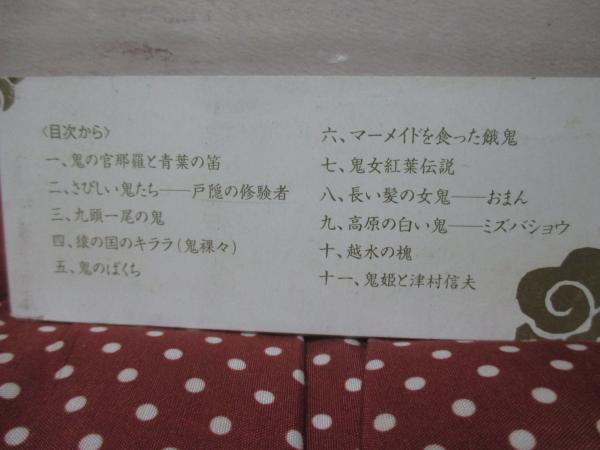 〈目次から〉
一、鬼の官那羅と青葉の笛
二、さびしい鬼たち――戸隠の修験者
三、九頭一尾の鬼
四、猿の国のキララ(鬼裸々)
五、鬼のばくち
六、マーメイドを食った餓鬼
七、鬼女紅葉伝説
八、長い髪の女鬼――おまん
九、高原の白い鬼――ミズバショウ
十、越水の槐
十一、鬼姫と津村信夫